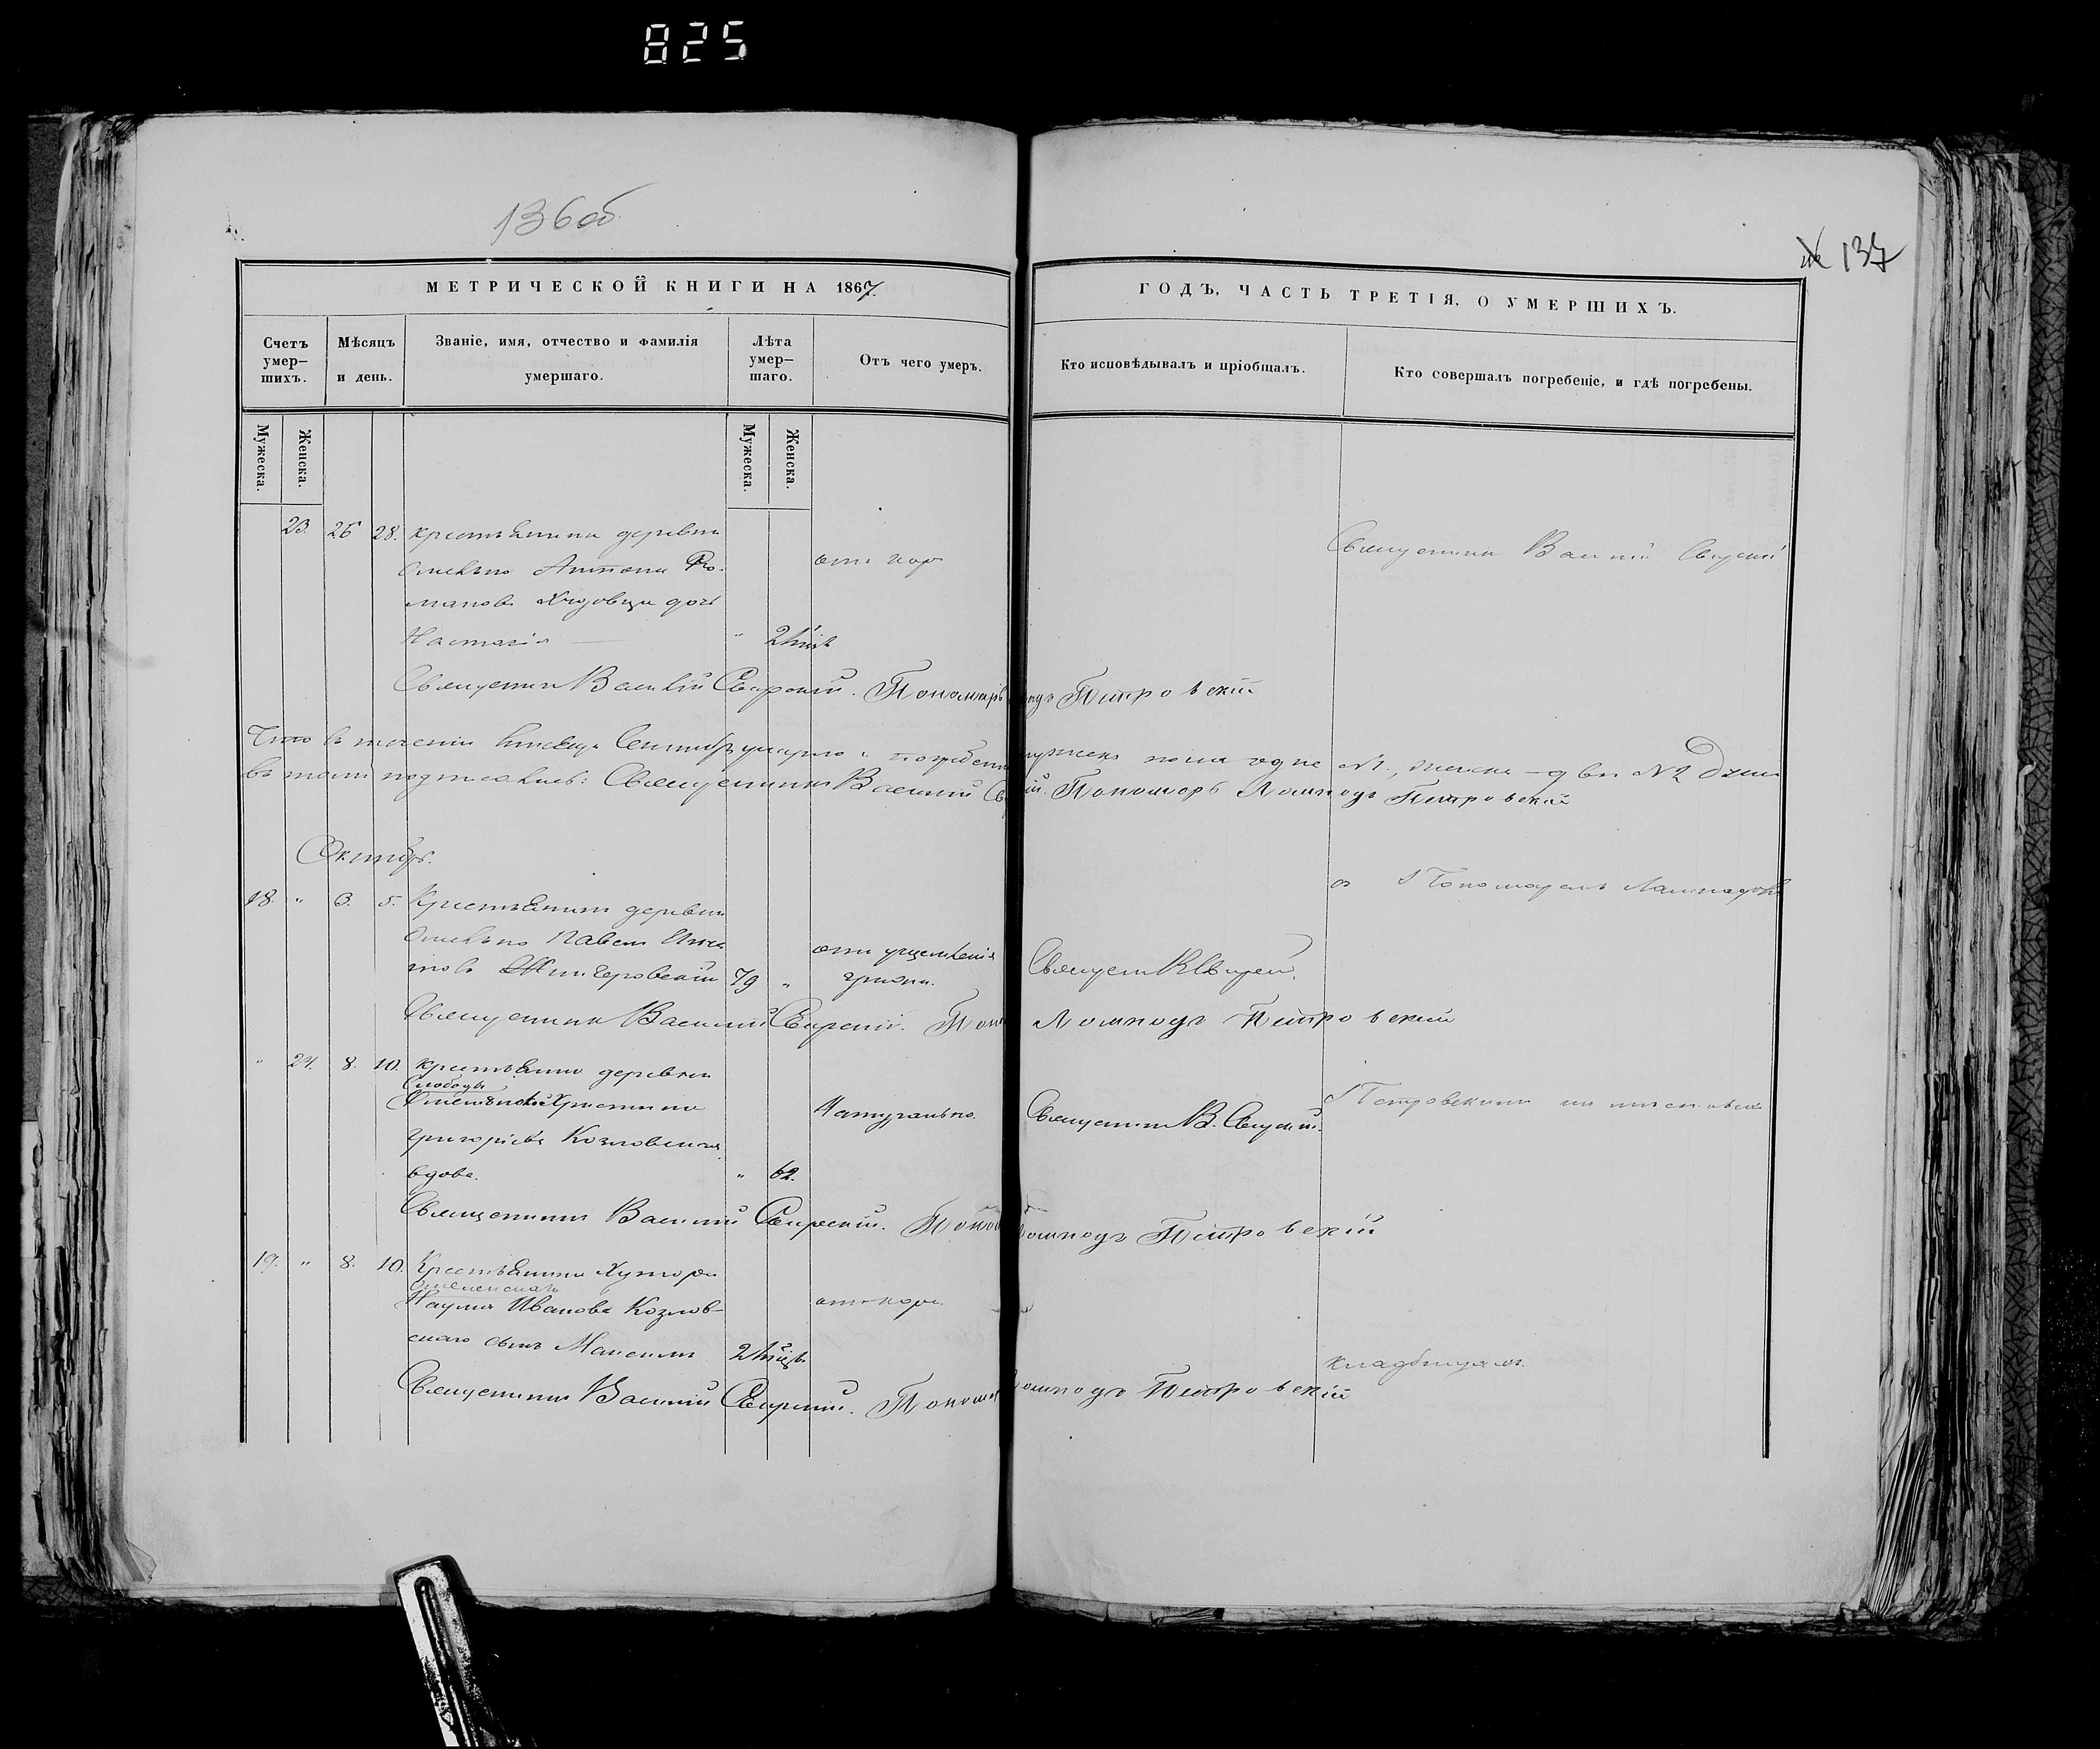 825
136об
137
МЕТРИЧЕСКОЙ КНИГИ НА 1867.
ГОДЪ, ЧАСТЬ ТРЕТІЯ, О УМЕРШИХЪ.
Счетъ умер–шихъ.
Мѣсяцъ и день.
Званіе, имя, отчество и фамилія умершаго.
Лѣта умер–шаго.
Отъ чего умеръ.
Кто исповѣдывалъ и пріобщалъ.
Кто совершалъ погребеніе, и гдѣ погребены.
Мужеска.
Женска.
Мужеска.
Женска.
23. 26 28. крестьянина деревни
Антона Ро-
манова дочь
Настасія " 2
отъ кор
Священникъ Василій Свирскій
Священникъ Василій Свирскій. Пономарь Петровскій
Что въ теченіи Сентябр умерло и погребено мужеска пола одне №1, женска – две №2 Души
въ томъ подписались: Священникъ Василій Пономарь Лампадъ Петровскій
Октябрь.
18. " 3. 5. Крестьянинъ деревни
Павелъ
79 "
отъ ущемленія
грыжи.
Священ В Свирскій.
съ Пономаремъ Лампадомъ
Священникъ Василій Свирскій. Пон Лампадъ Петровскій
" 24. 8. 10. крестьянка деревни
Слободы
Христина
Григорьева Козловская
вдова. " 62.
Натурально.
Священникъ В. Свирскій.
Петровскимъ на
Священникъ Василій Свирскій. Поном Лампадъ Петровскій
19. " 8. 10. Крестьянина Хутора
Наума Иванова Козлов-
скаго сынъ Максимъ 2
отъ кори.
кладбищахъ.
Священникъ Василій Свирскій. Поном Лампадъ Петровскій